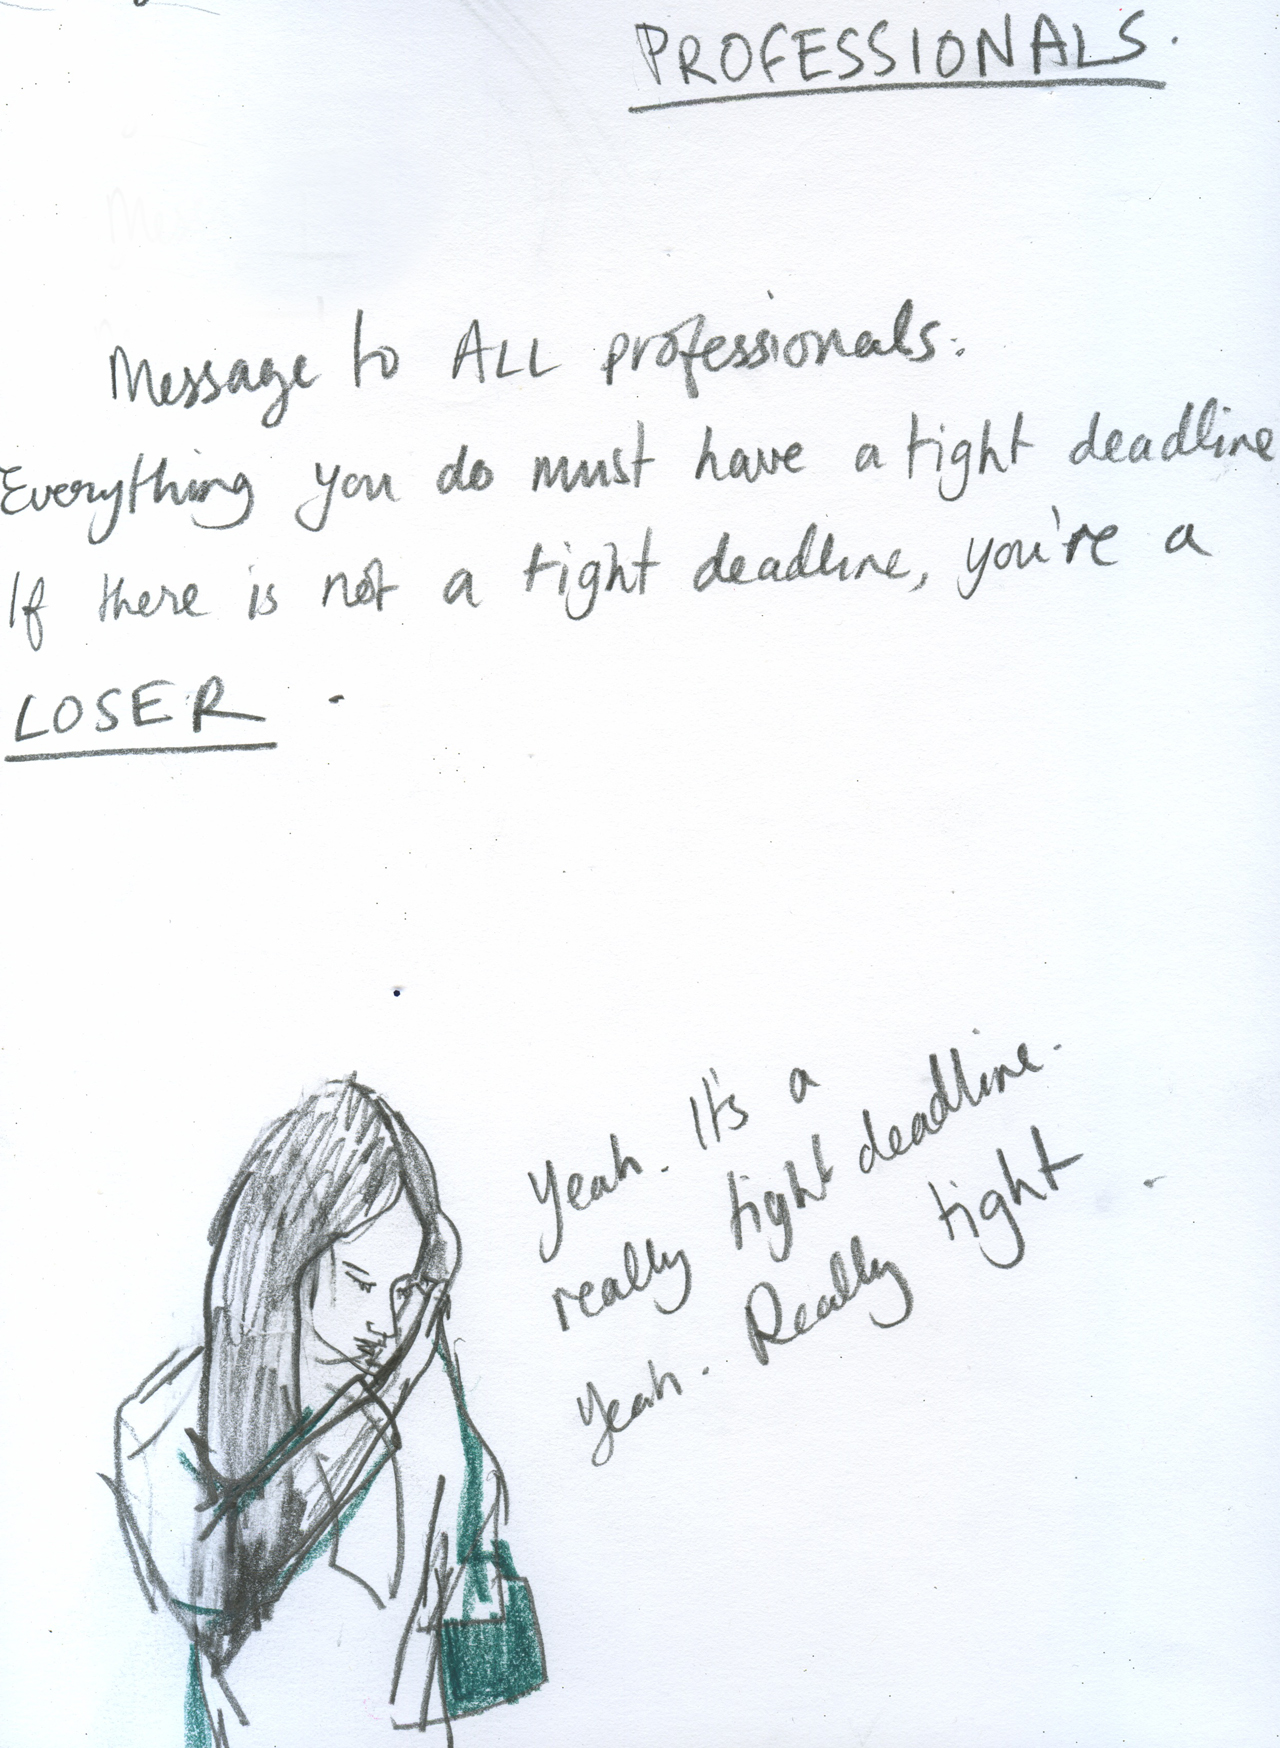 PROFESSIONALS.
Message to ALL professionals.
Everything you do must have a tight deadline
If there is not a tight deadline, you're a
LOSER.
Yeah. It's a
really tight deadline.
Yeah. Really tight.